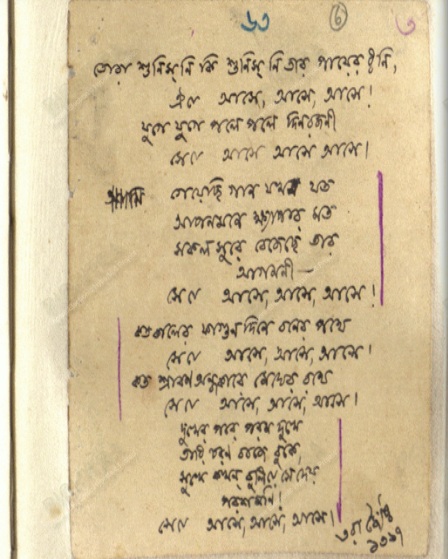 ৬৩ ৬ ৩
তোরা শুনিস্ নি কি শুনিস্ নি তার পায়ের ধ্বনি,
ঐযে আসে, আসে, আসে!
যুগে যুগে পলে পলে দিনরজনী
সে যে আসে আসে আসে।
গেয়েছি গান যখন যত
আপনমনে ক্ষ্যাপার মত
সকল সুরে বেজেছে তার
আগমনী—
সে যে আসে, আসে, আসে!
কতকালের ফাগুন দিনে বনের পথে
সে যে আসে, আসে, আসে।
কত শ্রাবণ অন্ধকারে মেঘের রথে
সে যে আসে, আসে, আসে।
দুখের পরে পরম দুখে
তারি চরণ বাজে বুকে,
সুখে কখন্ বুলিয়ে সে দেয়
পরশমণি!
সে যে আসে, আসে, আসে।
৩রা জ্যৈষ্ঠ
১৩১৭